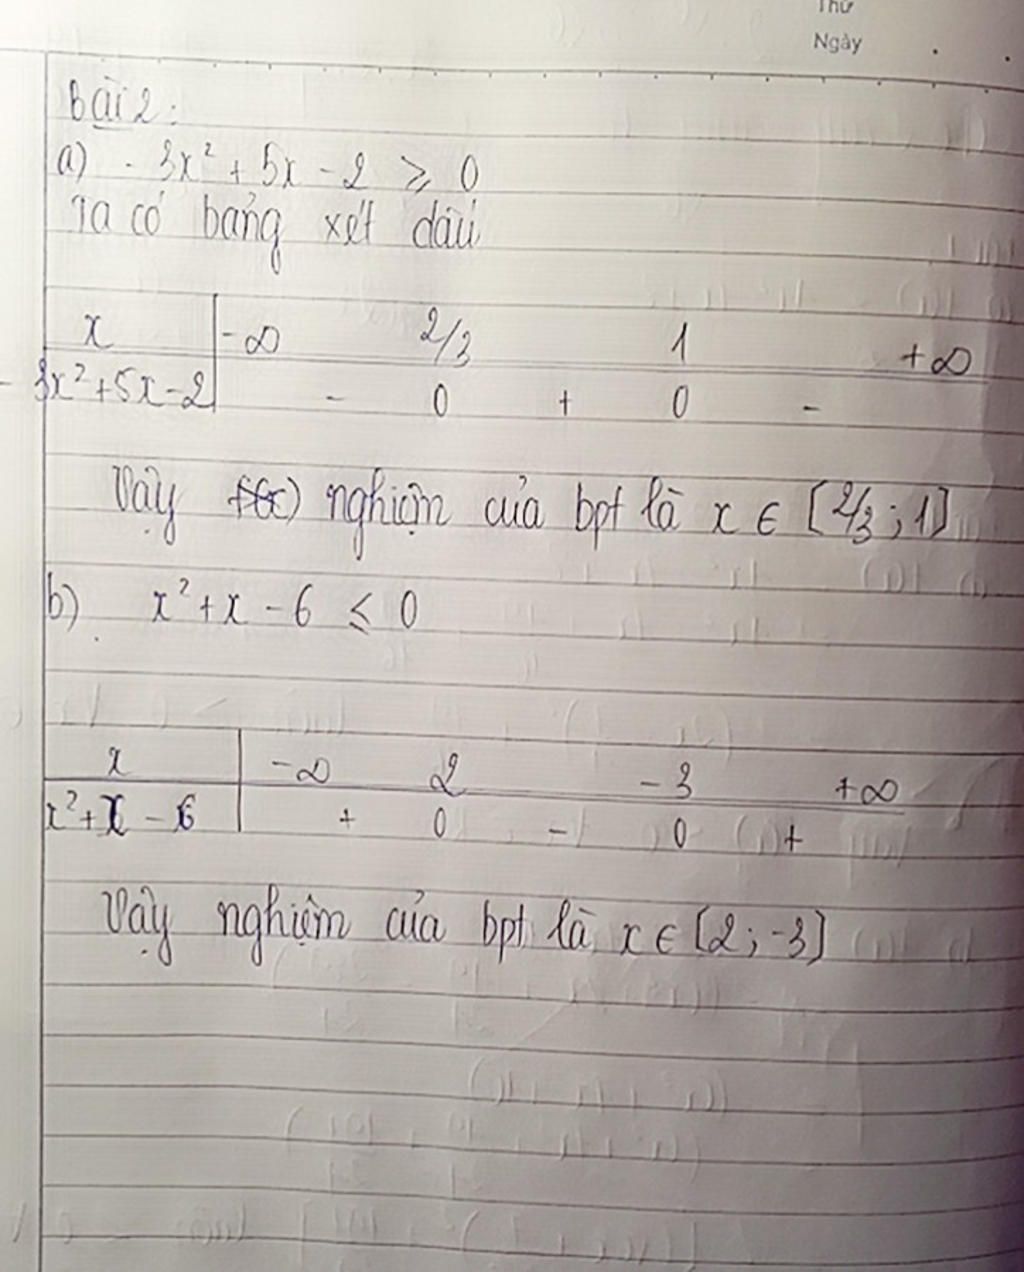 Thứ
Ngày
Bài 2:
a) - 3x² + 5x - 2 ⩾ 0
Ta có bảng xét dấu
x -∞ 2/3 1 +∞
- 3x² + 5x - 2 - 0 + 0 -
Vậy f(x) nghiệm của bpt là x ∈ [2/3 ; 1]
b) x² + x - 6 ⩽ 0
x -∞ 2 - 3 +∞
x² + x - 6 + 0 - 0 +
Vậy nghiệm của bpt là x ∈ [2 ; -3]